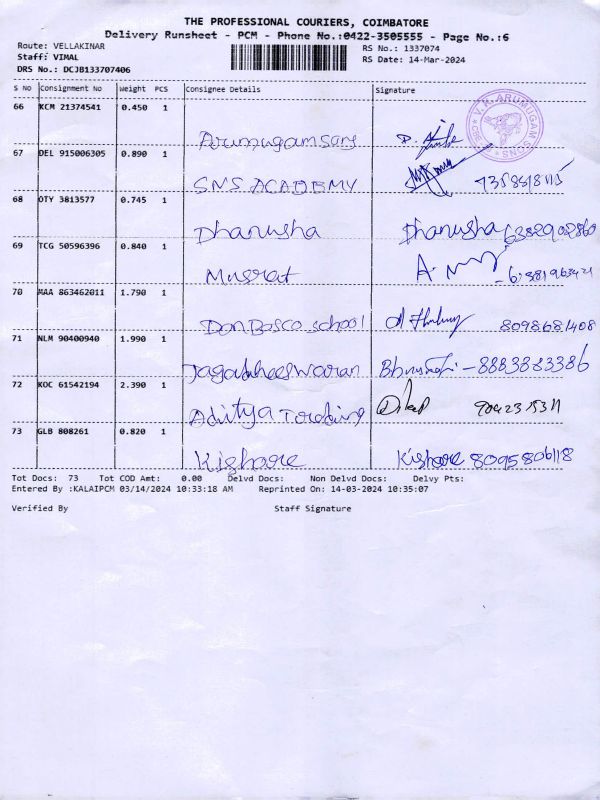 THE PROFESSIONAL COURIERS, COIMBATORE
Delivery Runsheet - PCM - Phone No.:0422-3505555 - Page No.:6
Route: VELLAKINAR
RS No.: 1337074
Staff: VIMAL
RS Date: 14-Mar-2024
DRS No.: DCJB133707406
S No Consignment No Weight PCS Consignee Details Signature
66 KCM 21374541 0.450 1
V. K. ARUMUGAM SONS
Arumugam sons
67 DEL 915006305 0.890 1
SNS ACADEMY
68 OTY 3813577 0.745 1
Dhanusha Dhanusha 6382902860
69 TCG 50596396 0.840 1
Musrat
70 MAA 863462011 1.790 1
Don Bosco school 8098681408
71 NLM 90400940 1.990 1
Jagatheeswaran 8883883386
72 KOC 61542194 2.390 1
Aditya Trading
73 GLB 808261 0.820 1
Kishore Kishore 8095806118
Tot Docs: 73 Tot COD Amt: 0.00 Delvd Docs: Non Delvd Docs: Delvy Pts:
Entered By :KALAIPCM 03/14/2024 10:33:18 AM Reprinted On: 14-03-2024 10:35:07
Verified By Staff Signature